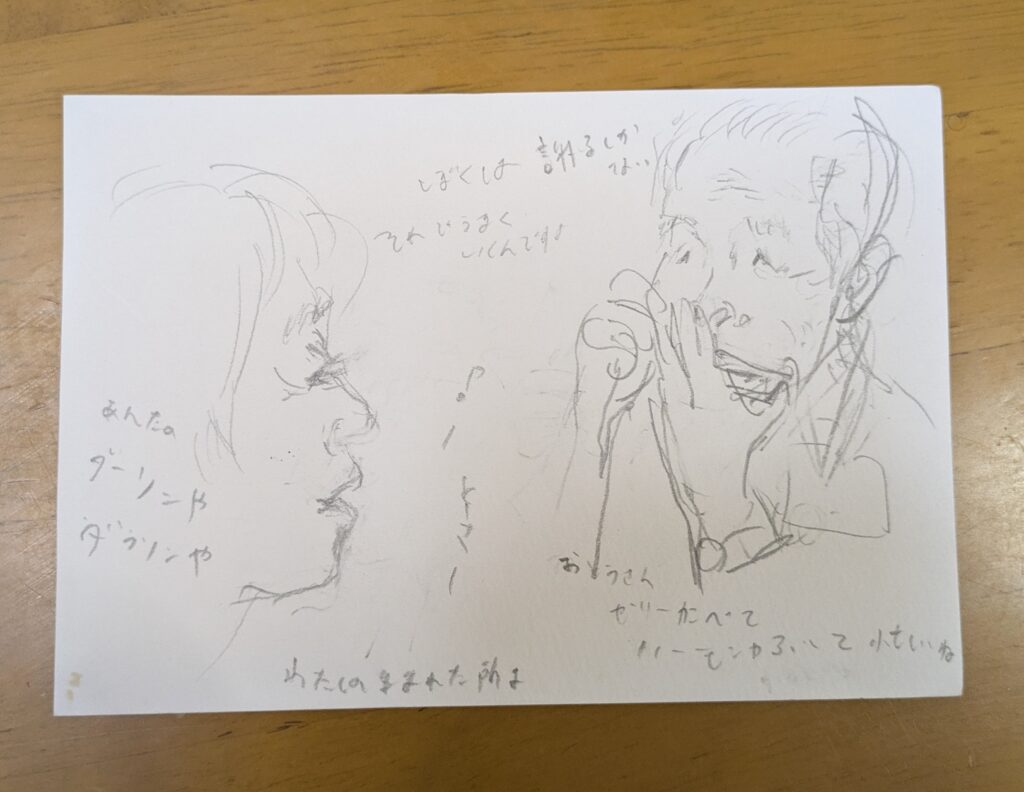 ぼくは 謝るしか
ない
それでうまく
いくんです!
あんたの
ダーリンや
ダーリンや
おとうさん
ゼリーたべて
ハーモニカふいて 忙しいね
わたしの生まれた所よ